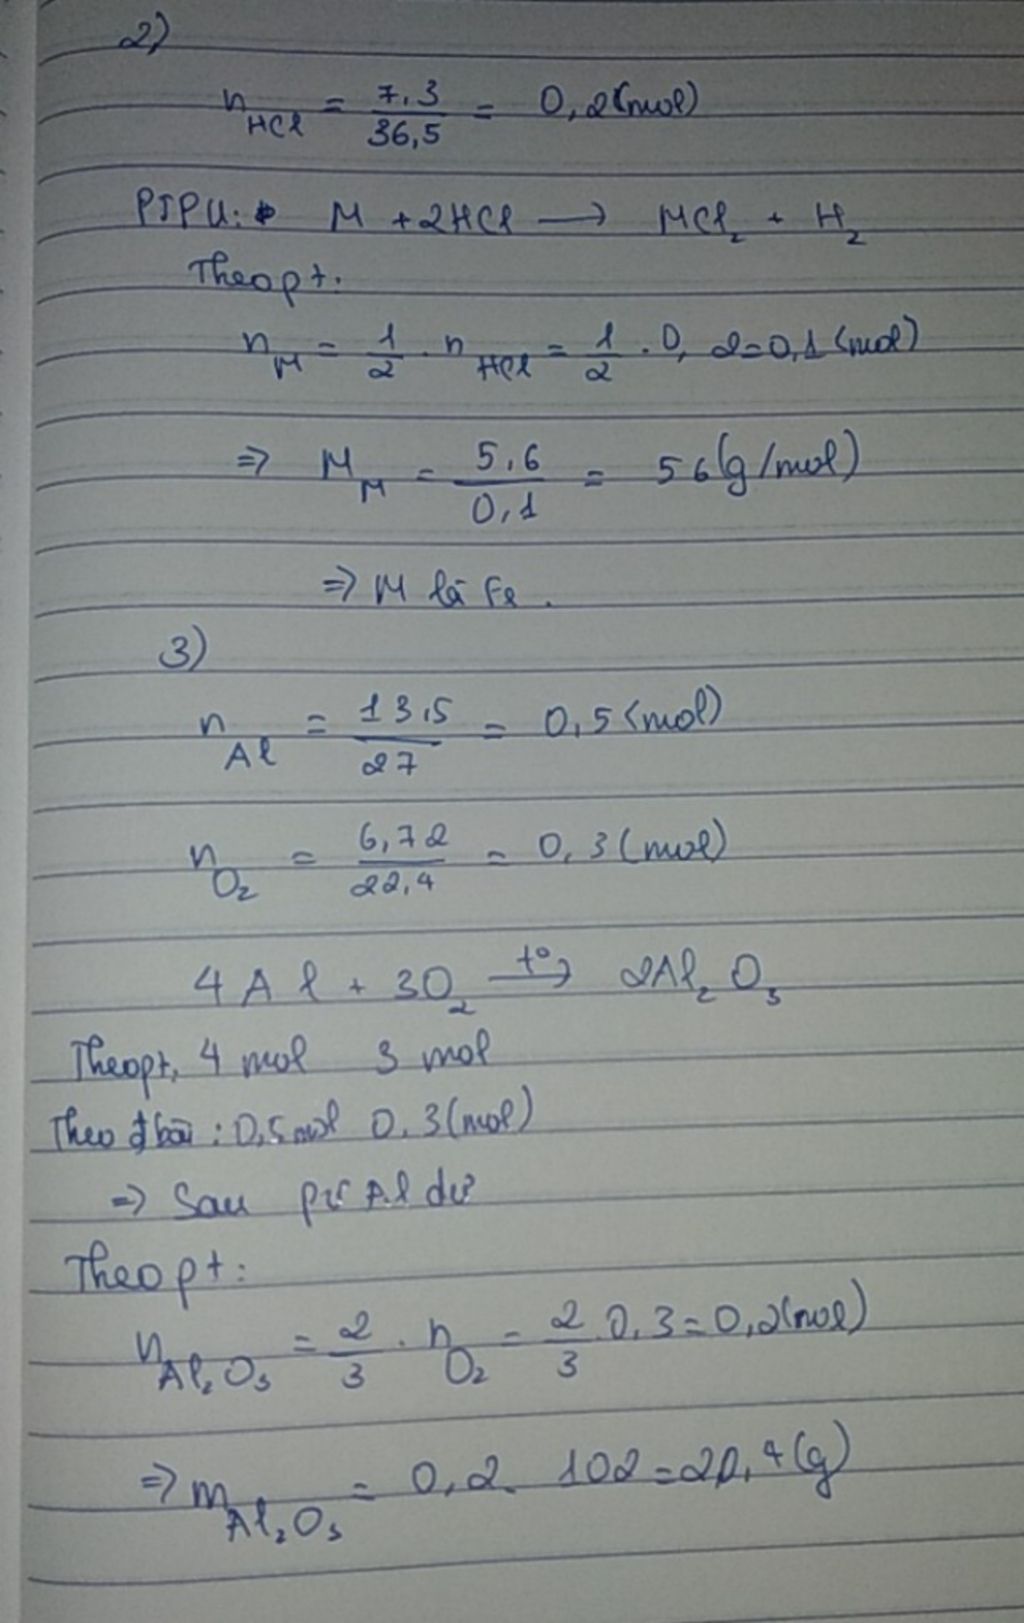 2)
n HCl = 7,3 / 36,5 = 0,2 (mol)
PTPU: M + 2HCl → MCl₂ + H₂
Theo pt:
n M = 1/2 . n HCl = 1/2 . 0,2 = 0,1 (mol)
⇒ M M = 5,6 / 0,1 = 56 (g/mol)
⇒ M là Fe.
3)
n Al = 13,5 / 27 = 0,5 (mol)
n O₂ = 6,72 / 22,4 = 0,3 (mol)
4Al + 3O₂ t° → 2Al₂O₃
Theo pt, 4 mol 3 mol
Theo đbài: 0,5 mol 0,3 (mol)
⇒ Sau pư Al dư
Theo pt:
n Al₂O₃ = 2/3 . n O₂ = 2/3 . 0,3 = 0,2 (mol)
⇒ m Al₂O₃ = 0,2 . 102 = 20,4 (g)